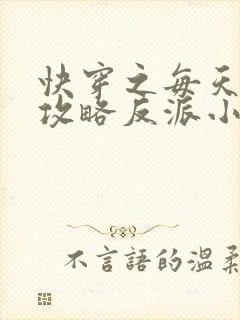 快穿之每天
攻略反派小
不言語的溫柔